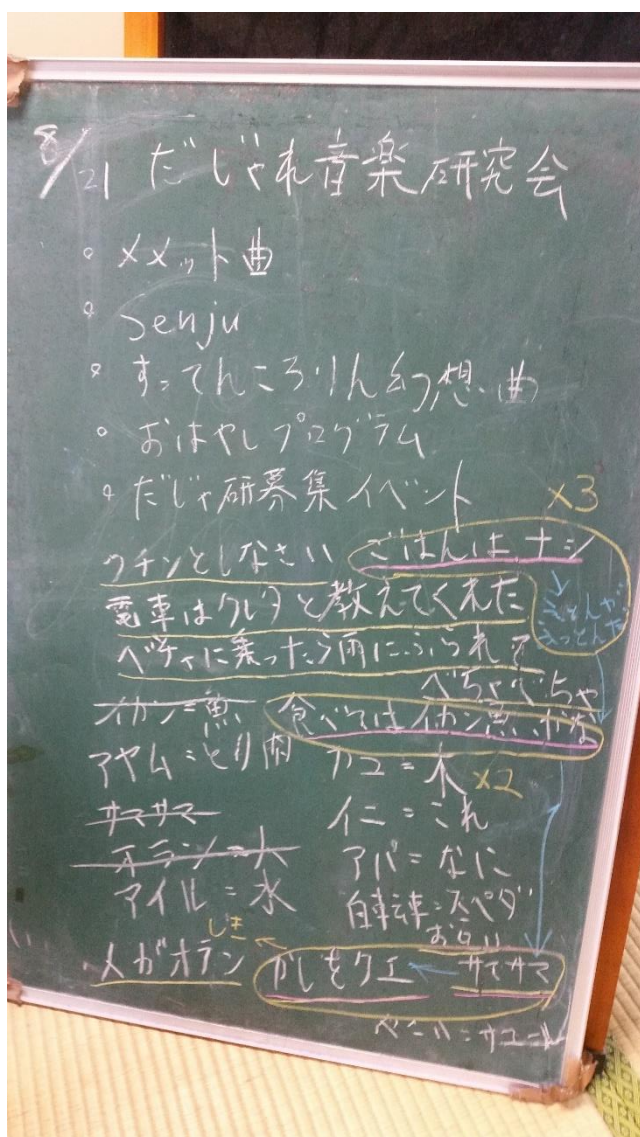 8/21 だじゃれ音楽研究会
・メメット曲
・Senju
・すってんころりん幻想曲
・おはやしプログラム
・だじゃ研募集イベント
×3
クチンとしなさい ごはんは ナシ
電車はクレタと教えてくれた
ベチャに乗ったら雨にふられて
べちゃべちゃ
イカン=魚 食べてはイカン魚が
アヤム=とり肉 カユ=木 ×2
サマサマ イニ=これ
オラン=人 アパ=なに
アイル=水 自転車=スペダ
じき お互い
人がオラン かしをクエ サマサマ